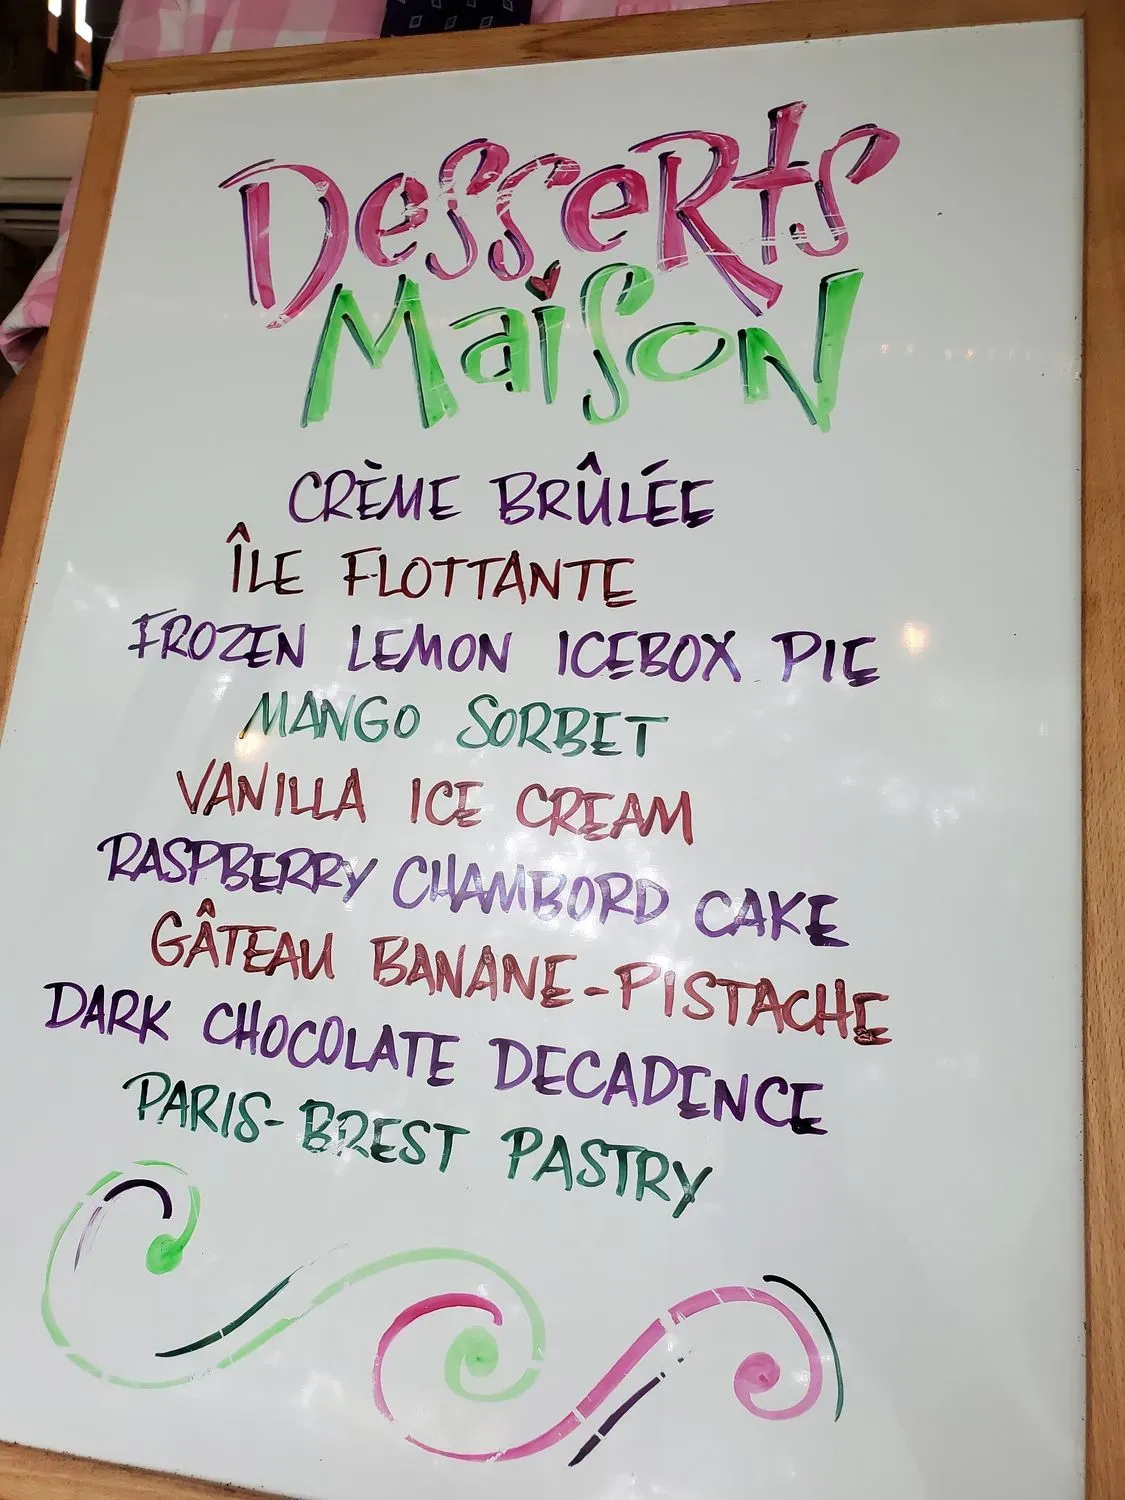 Desserts
Maison
CRÈME BRÛLÉE
ÎLE FLOTTANTE
FROZEN LEMON ICEBOX PIE
MANGO SORBET
VANILLA ICE CREAM
RASPBERRY CHAMBORD CAKE
GÂTEAU BANANE-PISTACHE
DARK CHOCOLATE DECADENCE
PARIS-BREST PASTRY